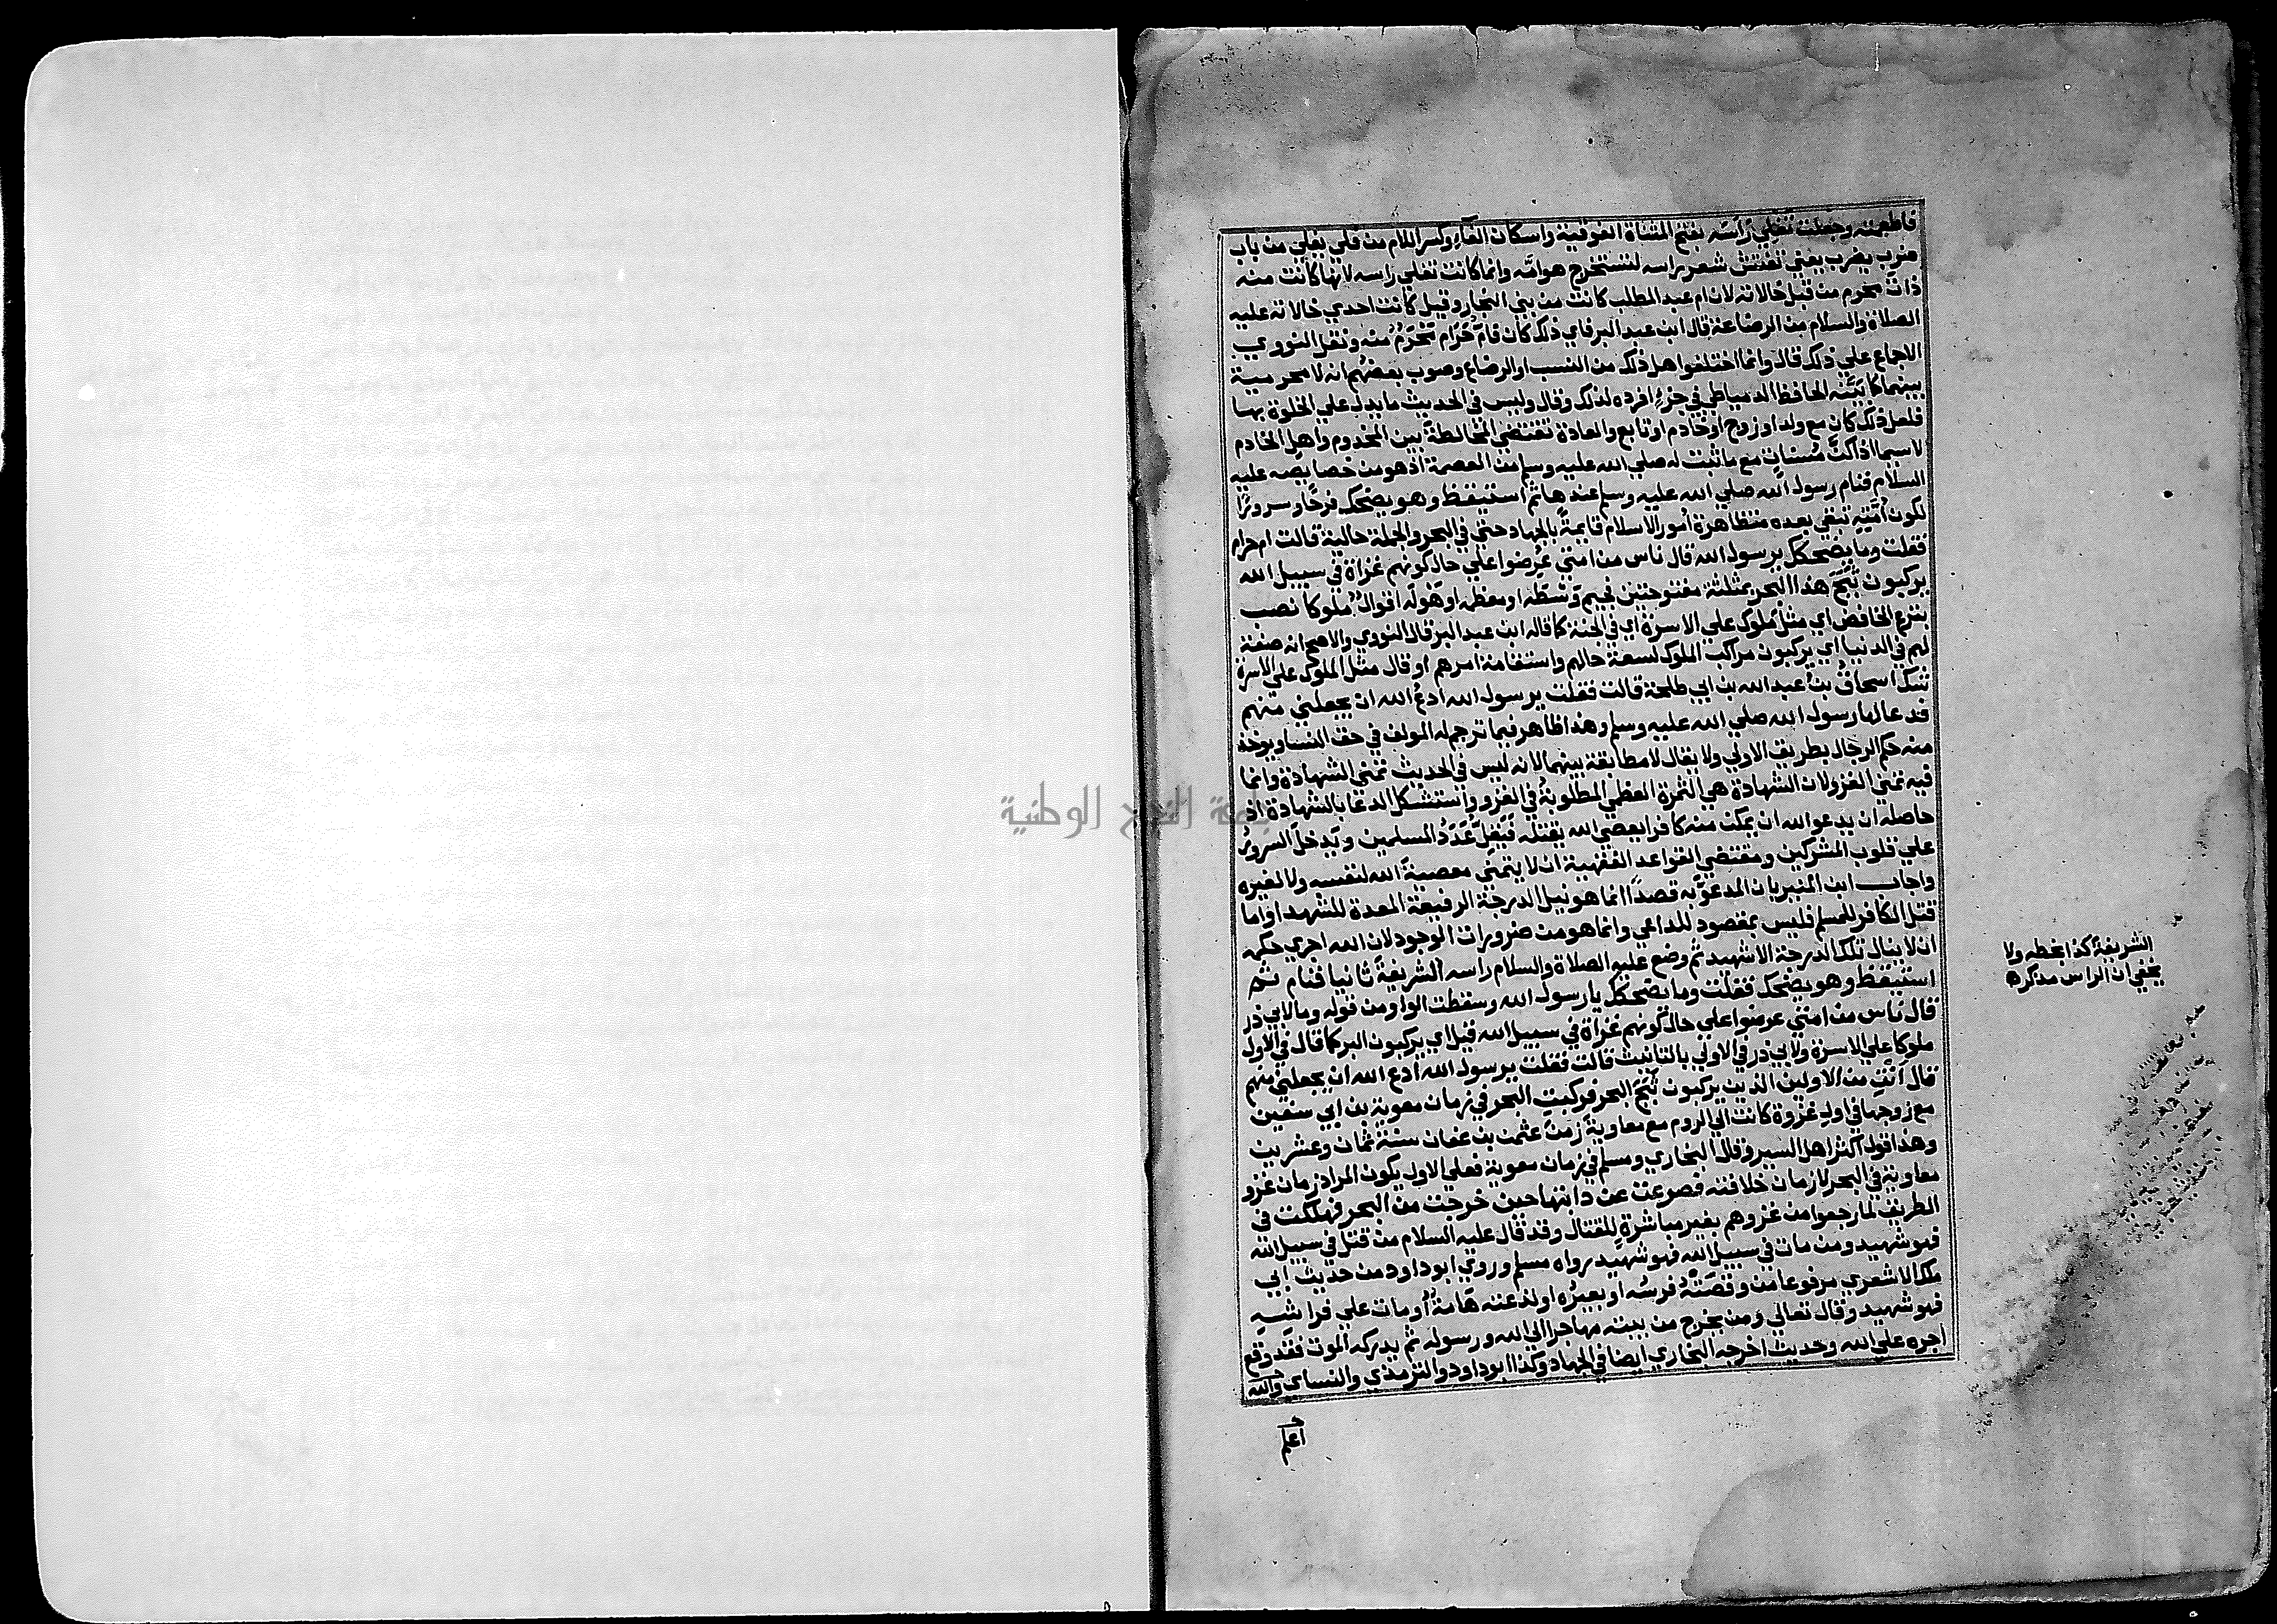 فاطعمته وجعلت تفلي راسه بفتح المثناة الفوقية واسكان الفاء وكسر اللام من فلي يفلي من باب
ضرب يضرب يعني تفتش شعر راسه لتستخرج هوامه وانما كانت تفلي راسه لانها كانت منه
ذات محرم من قبل خالاته لان ام عبد المطلب كانت من بني النجار وقيل كانت احدي خالاته عليه
الصلاة والسلام من الرضاعة قال ابن عبد البر فاي ذلك كان فام حرام محرم منه ونقل النووي
الاجماع علي ذلك قال وانما اختلفوا هل ذلك من النسب او الرضاع وصوب بعضهم انه لا محرمية
بينهما كما بينه الحافظ الدمياطي في جزء افرده لذلك وقال وليس في الحديث ما يدل علي الخلوة بها
فلعل ذلك كان مع ولد او زوج او خادم او تابع والعادة تقتضي المخالطة بين المخدوم واهل الخادم
لاسيما اذا كن مسنات مع ما ثبت له صلي الله عليه وسلم من العصمة اذ هو من خصايصه عليه
السلام فنام رسول الله صلي الله عليه وسلم عندها ثم استيقظ وهو يضحك فرحا وسرورا
لكون امته تبقي بعده متظاهرة امور الاسلام قايمة بالجهاد حتي في البحر والجملة حالية قالت ام حرام
فقلت وما يضحكك يرسول الله قال ناس من امتي عرضوا علي حال كونهم غزاة في سبيل الله
يركبون ثبج هذا البحر بمثلثة مفتوحتين فجيم وسطه او معظمه او هوله اقوال ملوكا نصب
بنزع الخافض اي مثل ملوك علي الاسرة اي في الجنة كما قاله ابن عبد البر قال النووي والاصح انه صفة
لهم في الدنيا اي يركبون مراكب الملوك لسعة حالهم واستقامة امرهم او قال مثل الملوك علي الاسرة
شك اسحاق بن عبد الله بن ابي طلحة قالت فقلت يرسول الله ادع الله ان يجعلني منهم
فدعا لها رسول الله صلي الله عليه وسلم وهذا ظاهر فيما ترجم له المولف في حق النسا ويوخذ
منه حكم الرجال بطريق الاولي ولا يقال لا مطابقة بينهما لانه ليس في الحديث تمني الشهادة وانما
فيه تمني الغزو لان الشهادة هي الثمرة العظمي المطلوبة في الغزو واستشكل الدعا بالشهادة اذ
حاصله ان يدعو الله ان يمكن منه كافرا يعصي الله يقتله فيقل عدد المسلمين ويدخل السرور
علي قلوب المشركين ومقتضي القواعد الفقهية ان لا يتمني معصية الله لنفسه ولا لغيره
واجاب ابن المنير بان المدعو به قصدا انما هو نيل الدرجة الرفيعة المعدة للشهدا واما
قتل الكافر للمسلم فليس بمقصود للداعي وانما هو من ضرورات الوجود لان الله اجري حكمه
ان لا ينال تلك الدرجة الا شهيد ثم وضع عليه الصلاة والسلام راسه الشريفة ثانيا فنام ثم
استيقظ وهو يضحك فقلت وما يضحكك يا رسول الله وسقطت الواو من قوله وما لابي ذر
قال ناس من امتي عرضوا علي حال كونهم غزاة في سبيل الله قيل اي يركبون البر كما قال في الاول
ملوكا علي الاسرة ولابي ذر في الاولي بالتانيث قالت فقلت يرسول الله ادع الله ان يجعلني منهم
قال انت من الاولين الذين يركبون ثبج البحر فركبت البحر في زمان معوية بن ابي سفين
مع زوجها في اول غزوة كانت الي الروم مع معاوية زمن عثمن بن عفان سنة ثمان وعشرين
وهذا قول اكثر اهل السير وقال البخاري ومسلم في زمان معوية فعلي الاول يكون المراد زمان غزو
معاوية في البحر لا زمان خلافته فصرعت عن دابتها حين خرجت من البحر فهلكت في
الطريق لما رجعوا من غزوهم بغير مباشرة للقتال وقد قال عليه السلام من قتل في سبيل الله
فهو شهيد ومن مات في سبيل الله فهو شهيد رواه مسلم وروي ابو داود من حديث ابي
ملك الاشعري مرفوعا من وقصته فرسه او بعيره او لدغته هامة او مات علي فراشه
فهو شهيد وقال تعالي ومن يخرج من بيته مهاجرا الي الله ورسوله ثم يدركه الموت فقد وقع
اجره علي الله وحديث اخرجه البخاري ايضا في الجهاد وكذا ابو داود والترمذي والنساي والله
اعلم
الشريفة كذا بخطه ولا
يخفي ان الراس مذكر اه
جامعة النجاح الوطنية